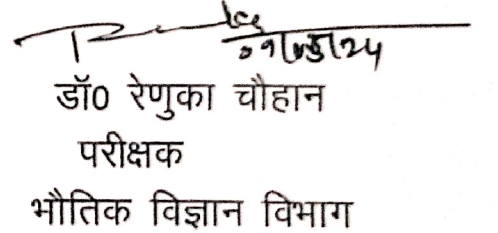 डॉ0 रेणुका चौहान
परीक्षक
भौतिक विज्ञान विभाग